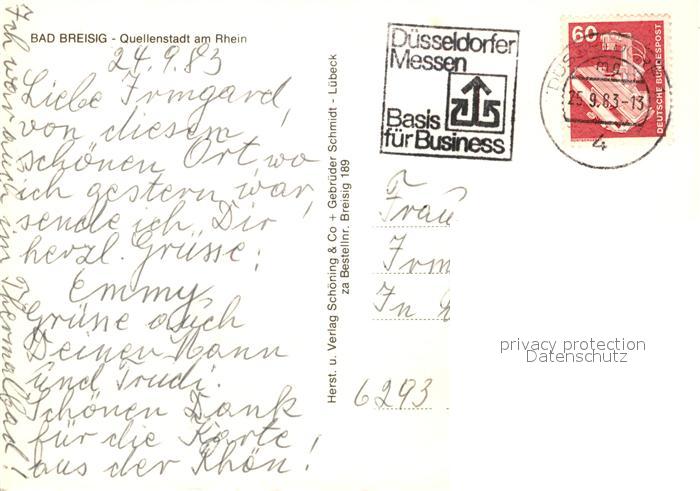 BAD BREISIG - Quellenstadt am Rhein
24.9.83
Liebe Irmgard,
von diesem
schönen Ort, wo
ich gestern war,
sende ich Dir
herzl. Grüsse,
Emmy
Grüsse auch
Deinen Mann
und Trudi.
Schönen Dank
für die Karte
aus der Rhön!
Ich war auch im Thermalbad!
Herst. u. Verlag Schöning & Co + Gebrüder Schmidt - Lübeck
za Bestellnr. Breisig 189
Düsseldorfer
Messen
Basis
für Business
60
DEUTSCHE BUNDESPOST
25.9.83-13
4
Frau
Irm
In
6293
privacy protection
Datenschutz